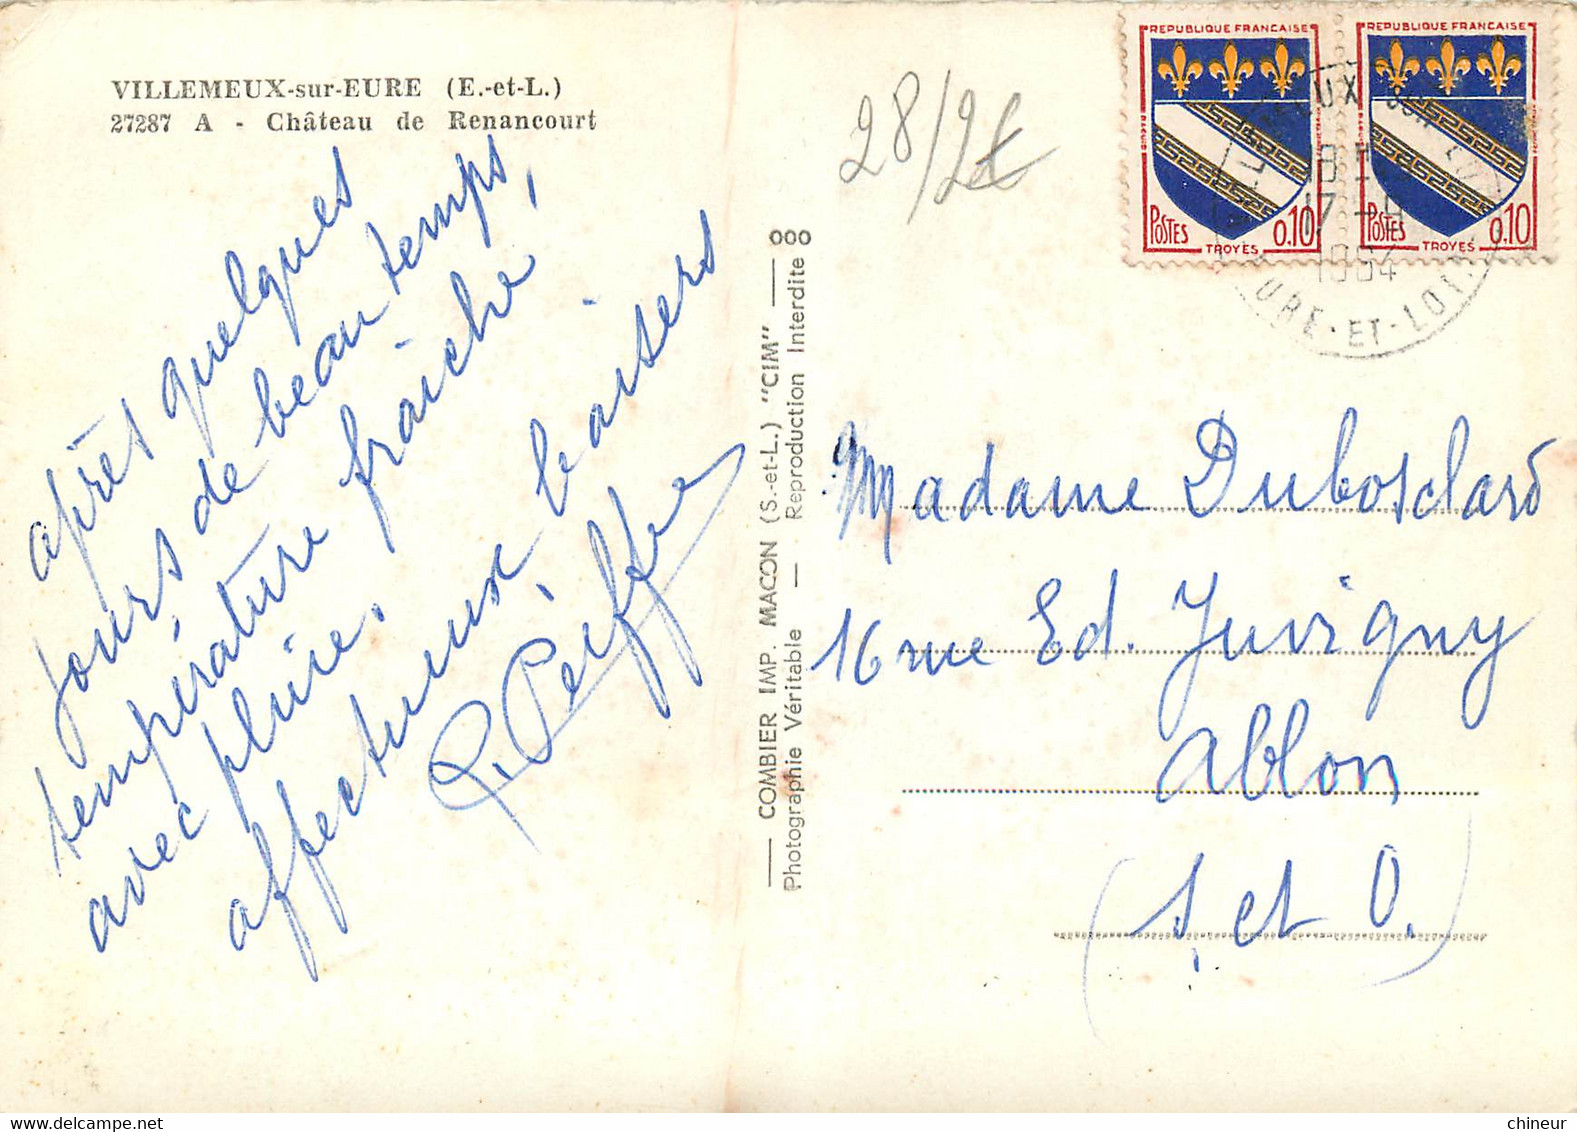 VILLEMEUX-sur-EURE (E.-et-L.)
27287 A - Château de Renancourt
après quelques
jours de beau temps,
température fraîche,
avec pluie.
affectueux baisers
COMBIER IMP. MACON (S.-et-L.) "CIM"
Photographie Véritable — Reproduction Interdite
000
28/2€
REPUBLIQUE FRANÇAISE
POSTES
0.10
TROYES
REPUBLIQUE FRANÇAISE
POSTES
0.10
TROYES
18 H
17 - 9
1964
EURE-ET-LOIR
Madame Dubosclard
16 rue Ed. Juvigny
Ablon
(S. et O.)
chineur